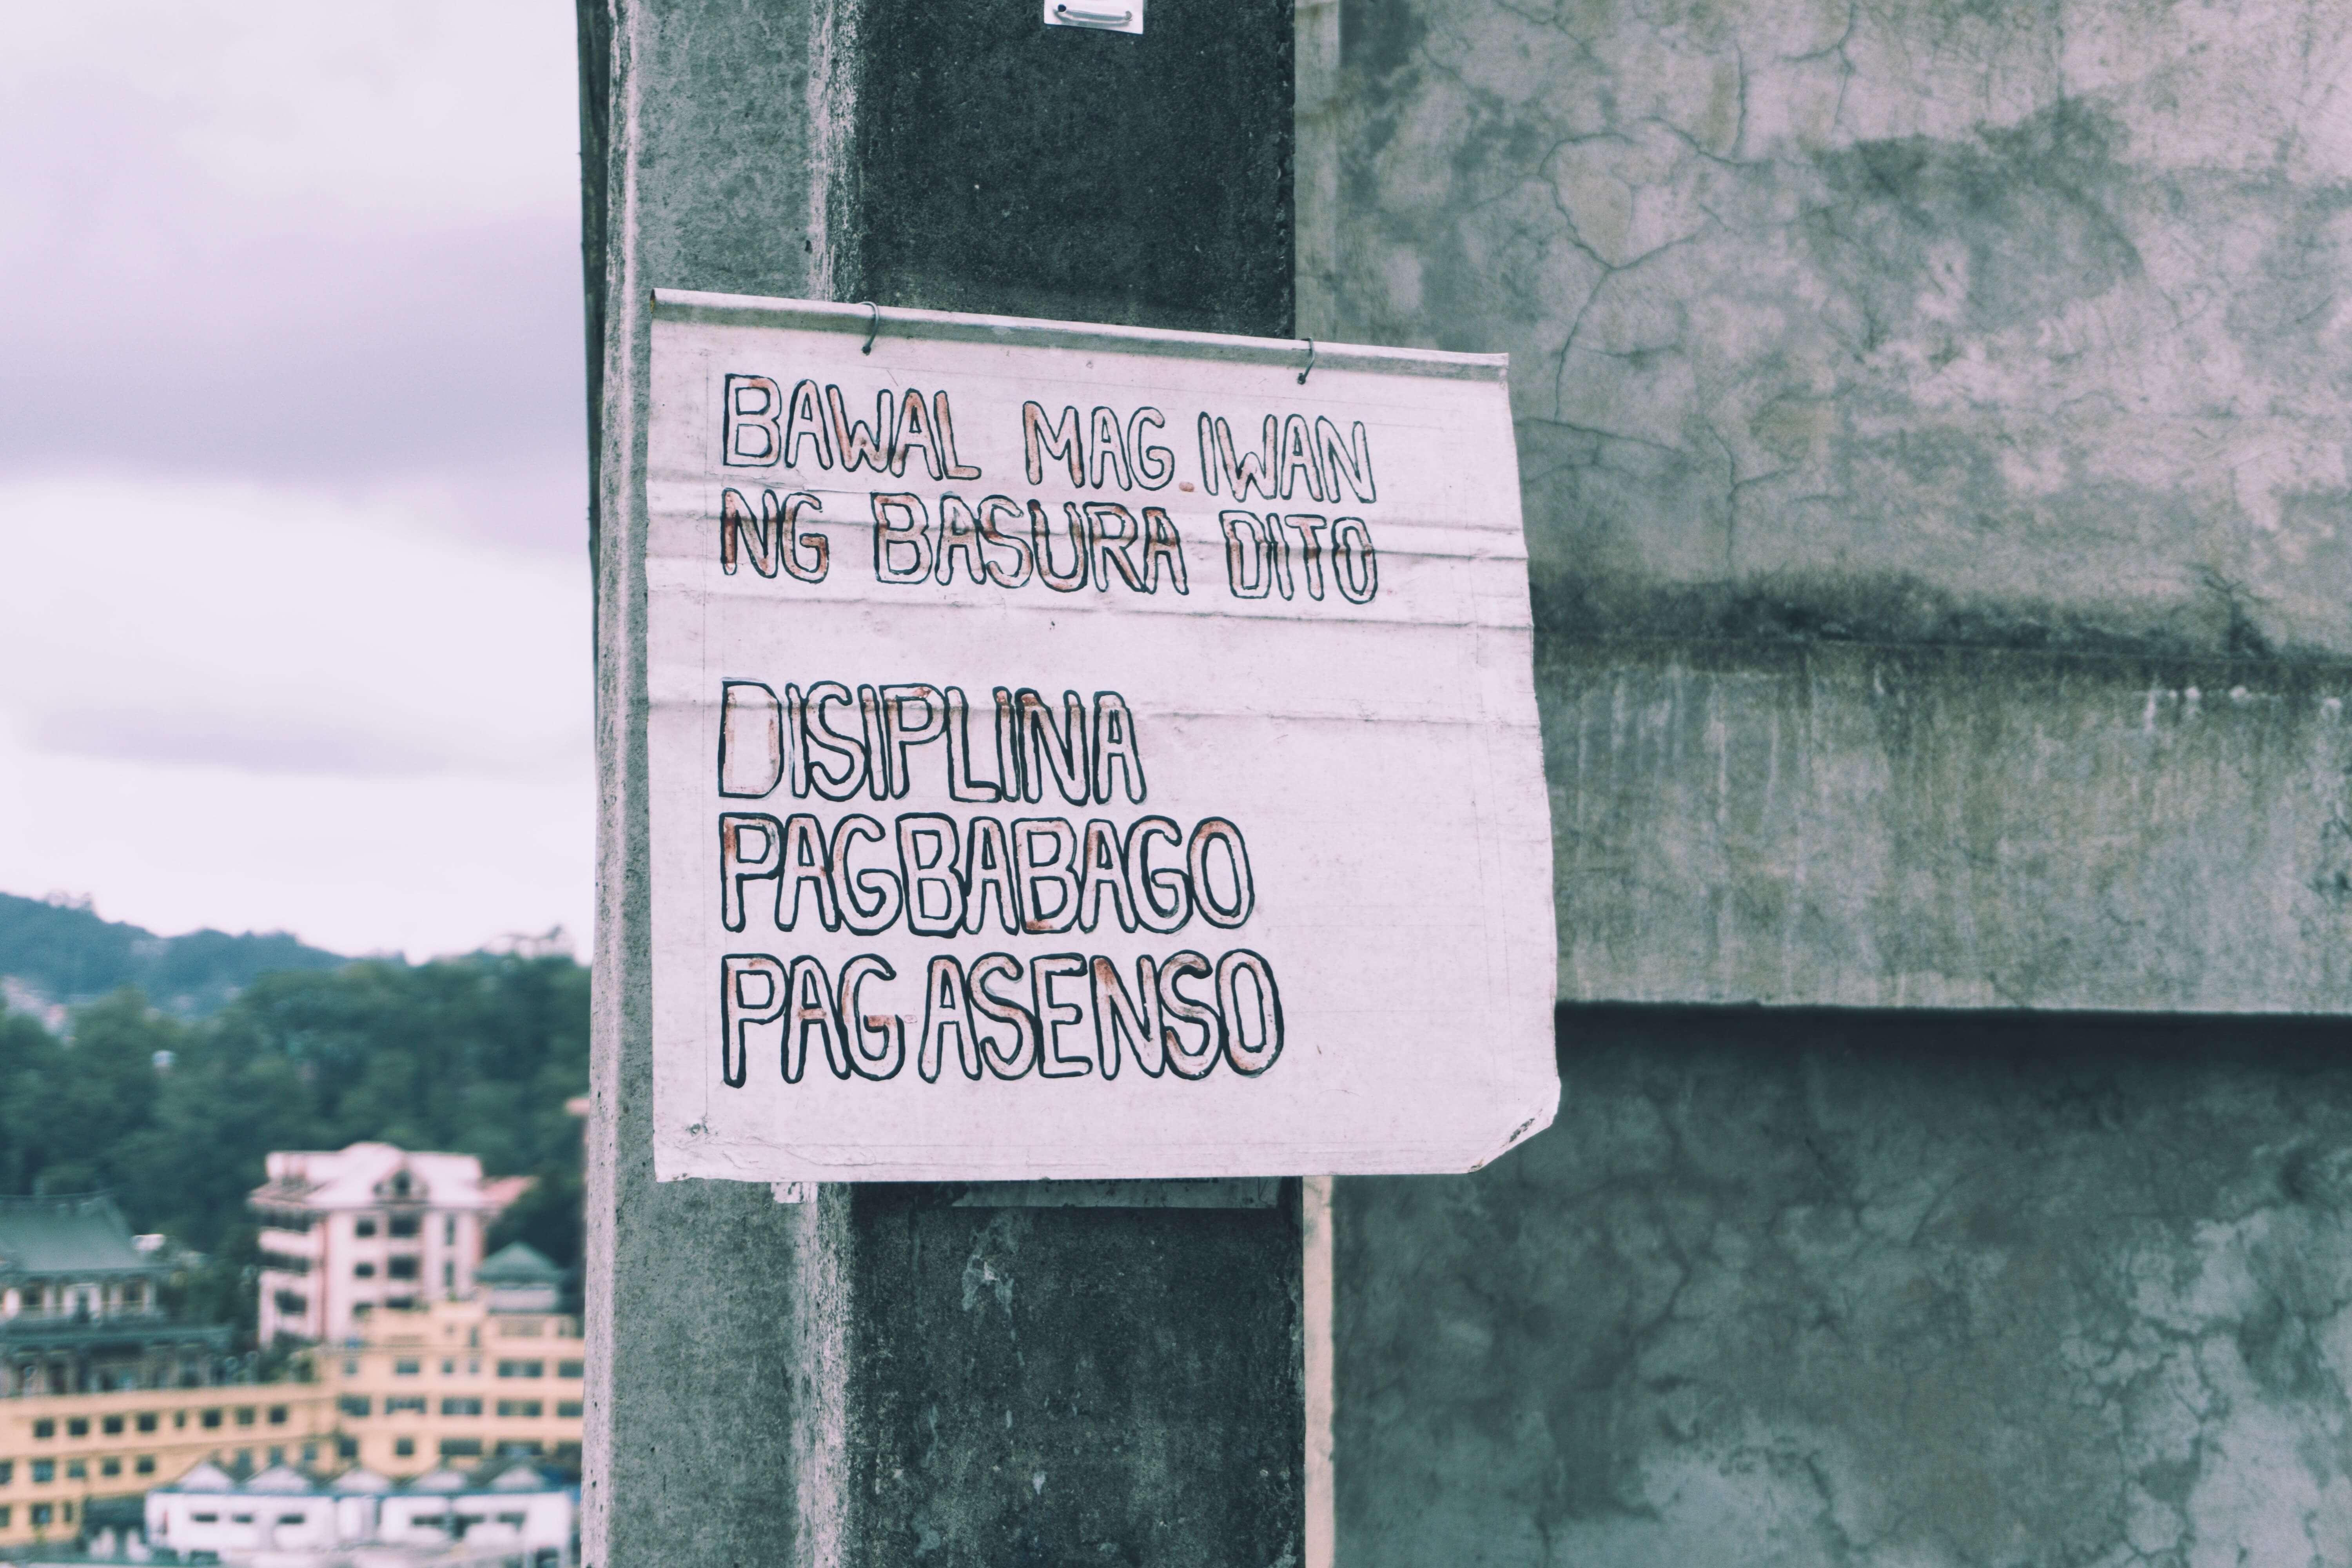 BAWAL MAG.IWAN
NG BASURA DITO
DISIPLINA
PAGBABAGO
PAG ASENSO